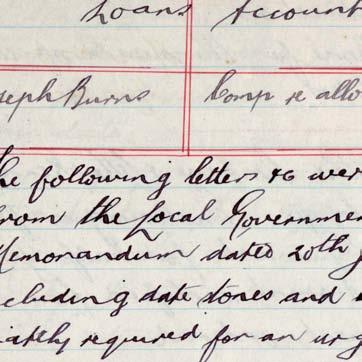 Loans Account
seph Burns Comp re allo
he following letters &c wer
from the Local Governmen
Memorandum dated 20th J
cluding date stones and
iately required for an urg